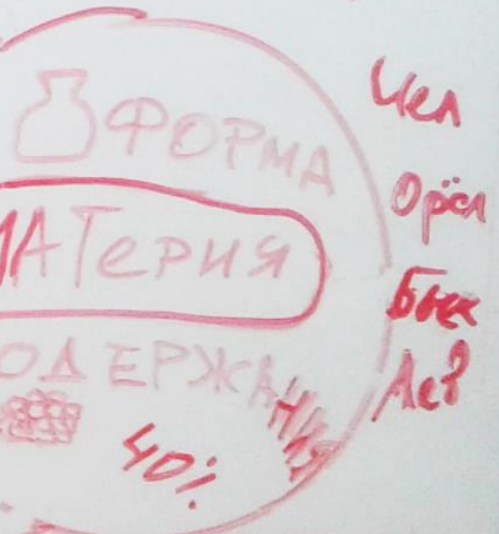 ФОРМА
МАТерия
ОДЕРЖАНИЯ
40%
Чел
Орёл
Бык
Лев